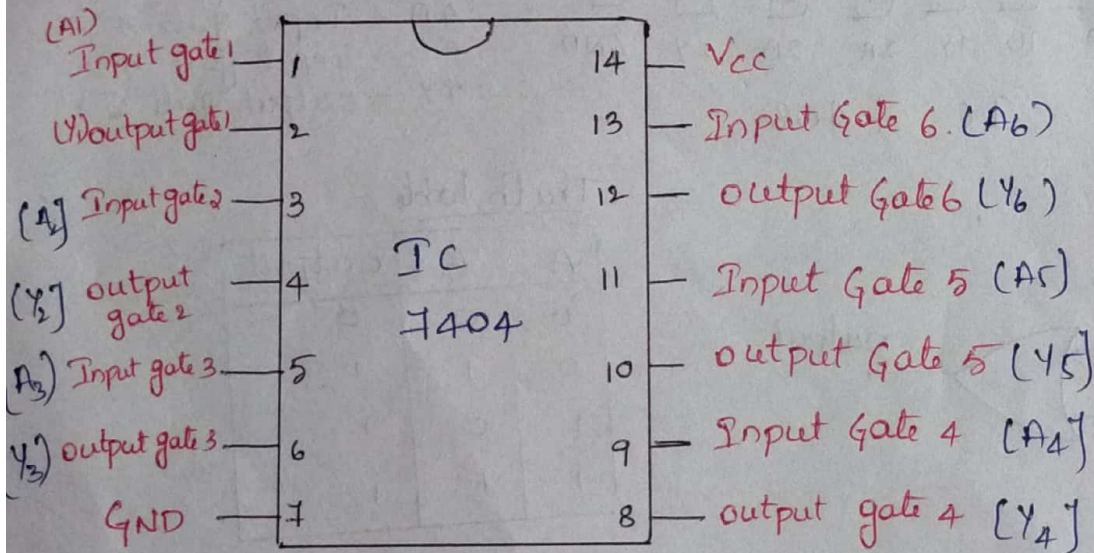 (A1)
Input gate1 1
(Y1) output gate1 2
[A2] Input gate2 3
[Y2] output
gate2 4
(A3) Input gate 3 5
(Y3) output gate 3 6
GND 7
IC
7404
14 Vcc
13 Input Gate 6. (A6)
12 output Gate6 (Y6)
11 Input Gate 5 (A5)
10 output Gate 5 (Y5]
9 Input Gate 4 (A4]
8 output gate 4 [Y4]